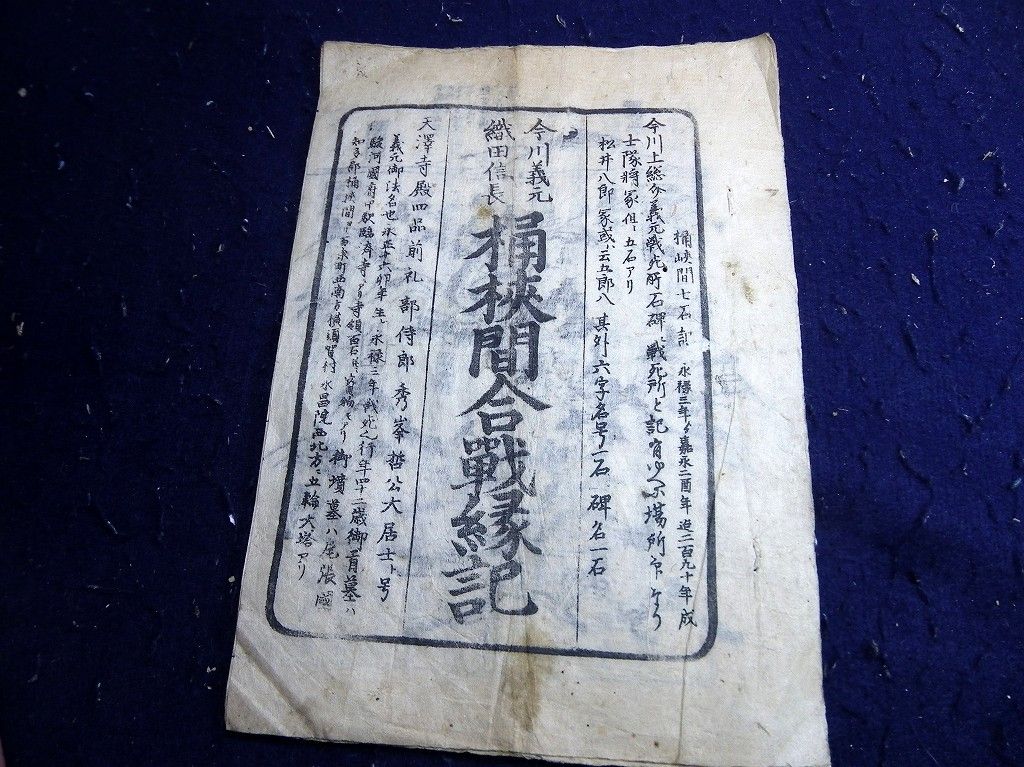 桶峡間七石記 永禄三年ヨリ嘉永二酉年迠二百九十年成
今川上総介義元戦死所石碑、戦死所と記有
士隊将冢但、五石アリ
松井八郎冢或ハ云五郎八 其外六字名号ノ一石 碑名一石
今川義元
織田信長
桶狹間合戰縁記
天澤寺殿四品前礼部侍郎秀峯哲公大居士ト号
義元御法名也永正十六卯年生、永禄三年戦死行年四十二歳御首墓ハ
駿河國府中 臨済寺ニアリ寺領百石 御墳墓ハ尾張國
知多郡桶狹間 西南方横須賀村永昌院西北方ニ五輪大塔アリ